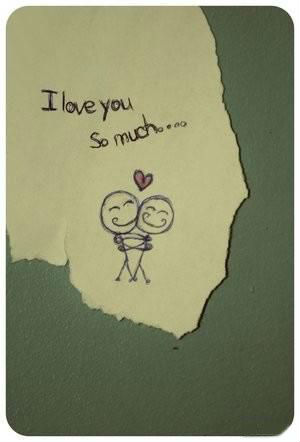 I love you
So much.....